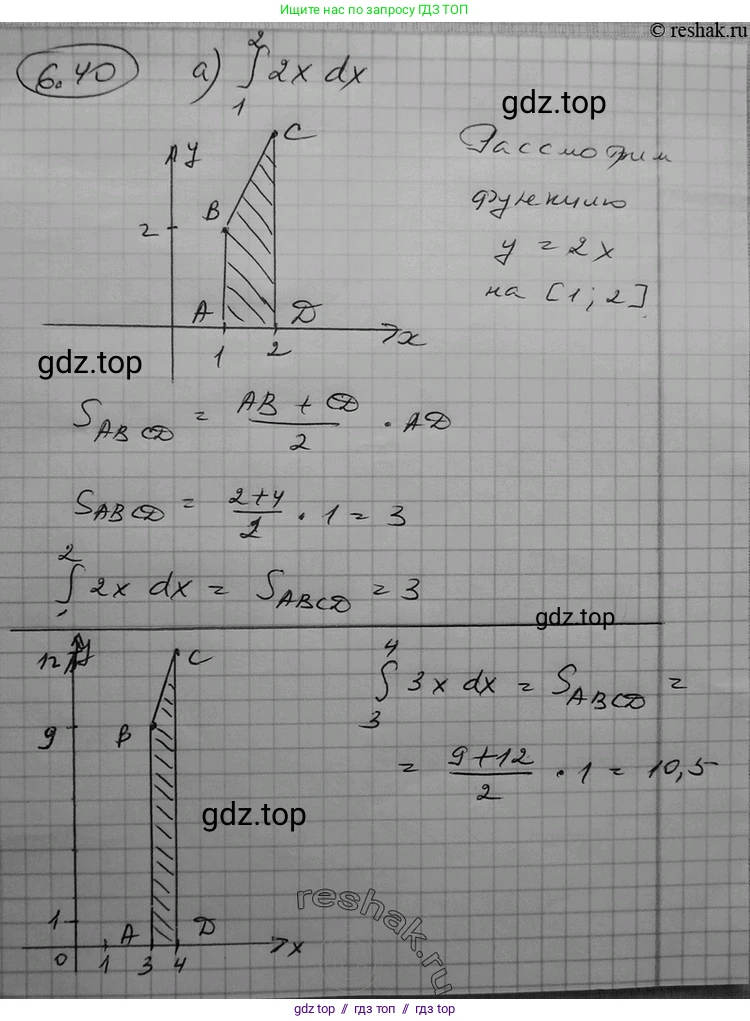 Ищите нас по запросу ГДЗ ТОП
© reshak.ru
6.40 а) ∫₁² 2x dx
gdz.top
Рассмотрим
функцию
y = 2x
на [1; 2]
y
C
B
2
A
D
1
2
x
gdz.top
S_ABCD = (AB + CD)/2 · AD
S_ABCD = (2+4)/2 · 1 = 3
∫₁² 2x dx = S_ABCD = 3
gdz.top
12
y
C
∫₃⁴ 3x dx = S_ABCD =
= (9+12)/2 · 1 = 10,5
9
B
gdz.top
reshak.ru
1
A
D
0
1
3
4
x
gdz top // гдз топ // гдз top